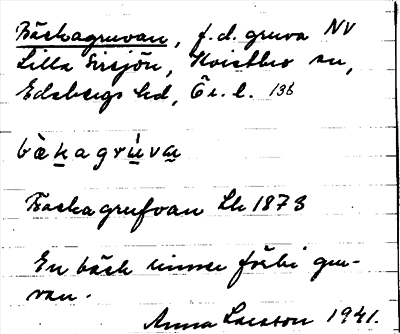 Bäckagruvan, f.d. gruva NV
Lilla Sirsjön, Kvistbro sn,
Edsbergs hd, Ör. l. 136
bäkagrùva
Backagrufvan Lk 1873
En bäck rinner förbi gru-
van.
Anna Larsson 1941.